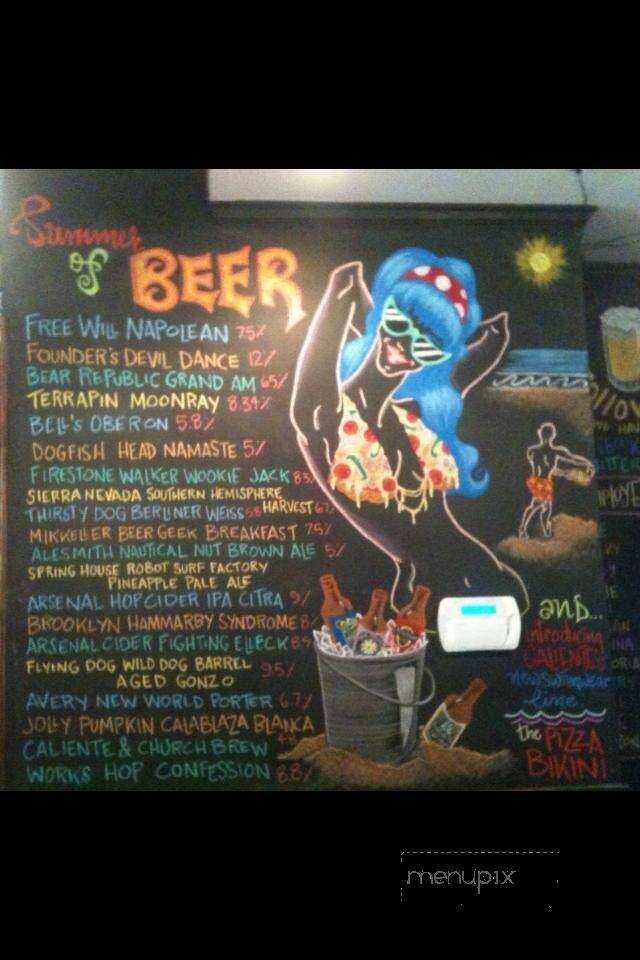 Summer
of
BEER
FREE WILL NAPOLEAN 7.5%
FOUNDER'S DEVIL DANCE 12%
BEAR REPUBLIC GRAND AM 6.5%
TERRAPIN MOONRAY 8.34%
BELL'S OBERON 5.8%
DOGFISH HEAD NAMASTE 5%
FIRESTONE WALKER WOOKIE JACK 8.3%
SIERRA NEVADA SOUTHERN HEMISPHERE
HARVEST 6.7%
THIRSTY DOG BERLINER WEISS
MIKKELLER BEER GEEK BREAKFAST 7.5%
ALESMITH NAUTICAL NUT BROWN ALE 5%
SPRING HOUSE ROBOT SURF FACTORY
PINEAPPLE PALE ALE
ARSENAL HOP CIDER IPA CITRA 9%
BROOKLYN HAMMARBY SYNDROME 8%
ARSENAL CIDER FIGHTING ELLECK 8.5%
FLYING DOG WILD DOG BARREL
AGED GONZO 9.5%
AVERY NEW WORLD PORTER 6.7%
JOLLY PUMPKIN CALABLAZA BLANCA
CALIENTE & CHURCH BREW
WORKS HOP CONFESSION 8.8%
and...
introducing
CALIENTE's
new swimwear
line
the PIZZA
BIKINI
menupix